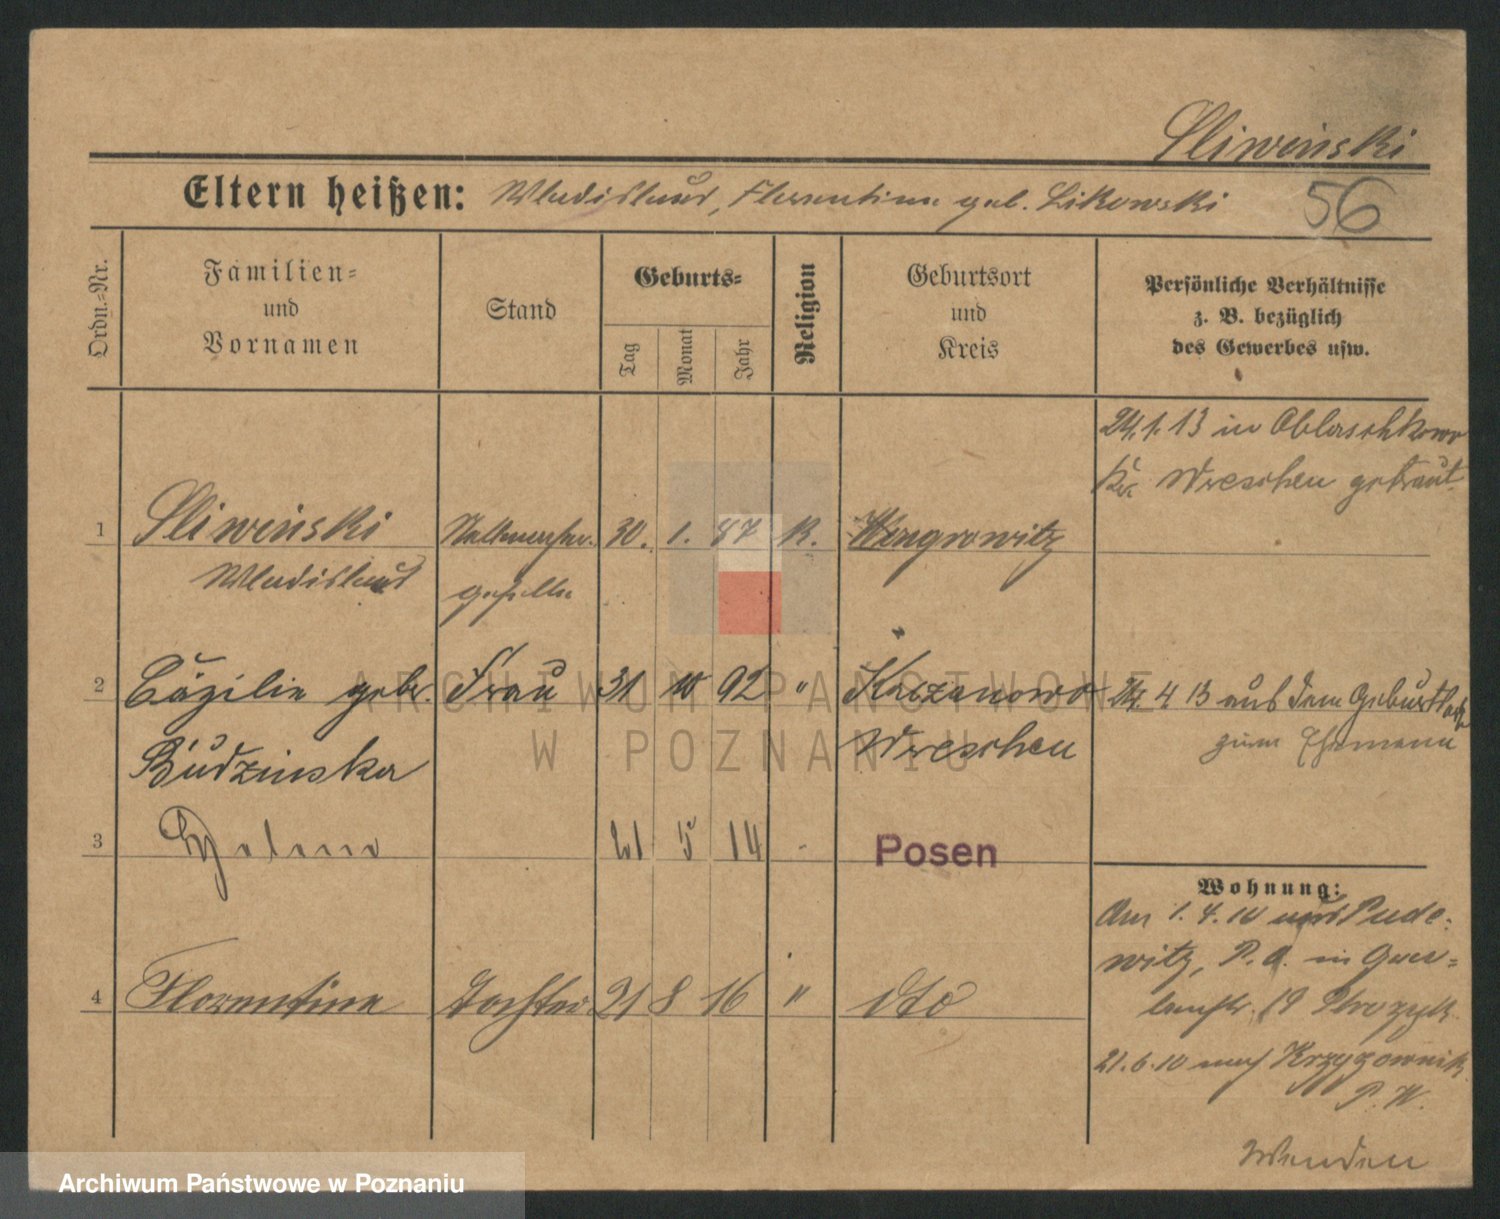 Sliwinski
Eltern heißen: Wladislaus, Florentine geb. Likowski
56
Ordn.-Nr.
Familien-
und
Vornamen
Stand
Geburts-
Tag
Monat
Jahr
Religion
Geburtsort
und
Kreis
Persönliche Verhältnisse
z. B. bezüglich
des Gewerbes usw.
24.1.13 in
Kr. Wreschen getraut
1 Sliwinski 30. 1. 87 K. Wongrowitz
Wladislaus
geselle
2 Cäzilie gebr. Frau 31 10 92 " Kaczanowo 24 4 13 aus dem Geburtsorte
Budzinska Wreschen zum Ehemann
3 Helene 21 5 14 Posen
Wohnung:
Am 1.4.10 Pude-
witz, P. O. in
4 Florentine Tochter 21 8 16 " dto
19
21.6.10 nach Krzyzownik
P. W.
Wenden
ARCHIWUM PAŃSTWOWE
W POZNANIU
Archiwum Państwowe w Poznaniu